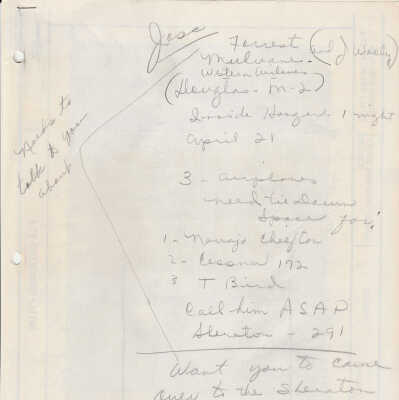 Jose
Forrest (and) Wooly
Mulvane -
Western Airlines
(Douglas - M-2)
Inside Hangar 1 night
April 21
Needs to
talk to you
about
3 - airplanes
need tie Down
Space for!
1 - Navajo Chiefton
2 - Cessna 172
3 T Bird
Call him ASAP
Sheraton - 291
Want you to come
over to the Sheraton